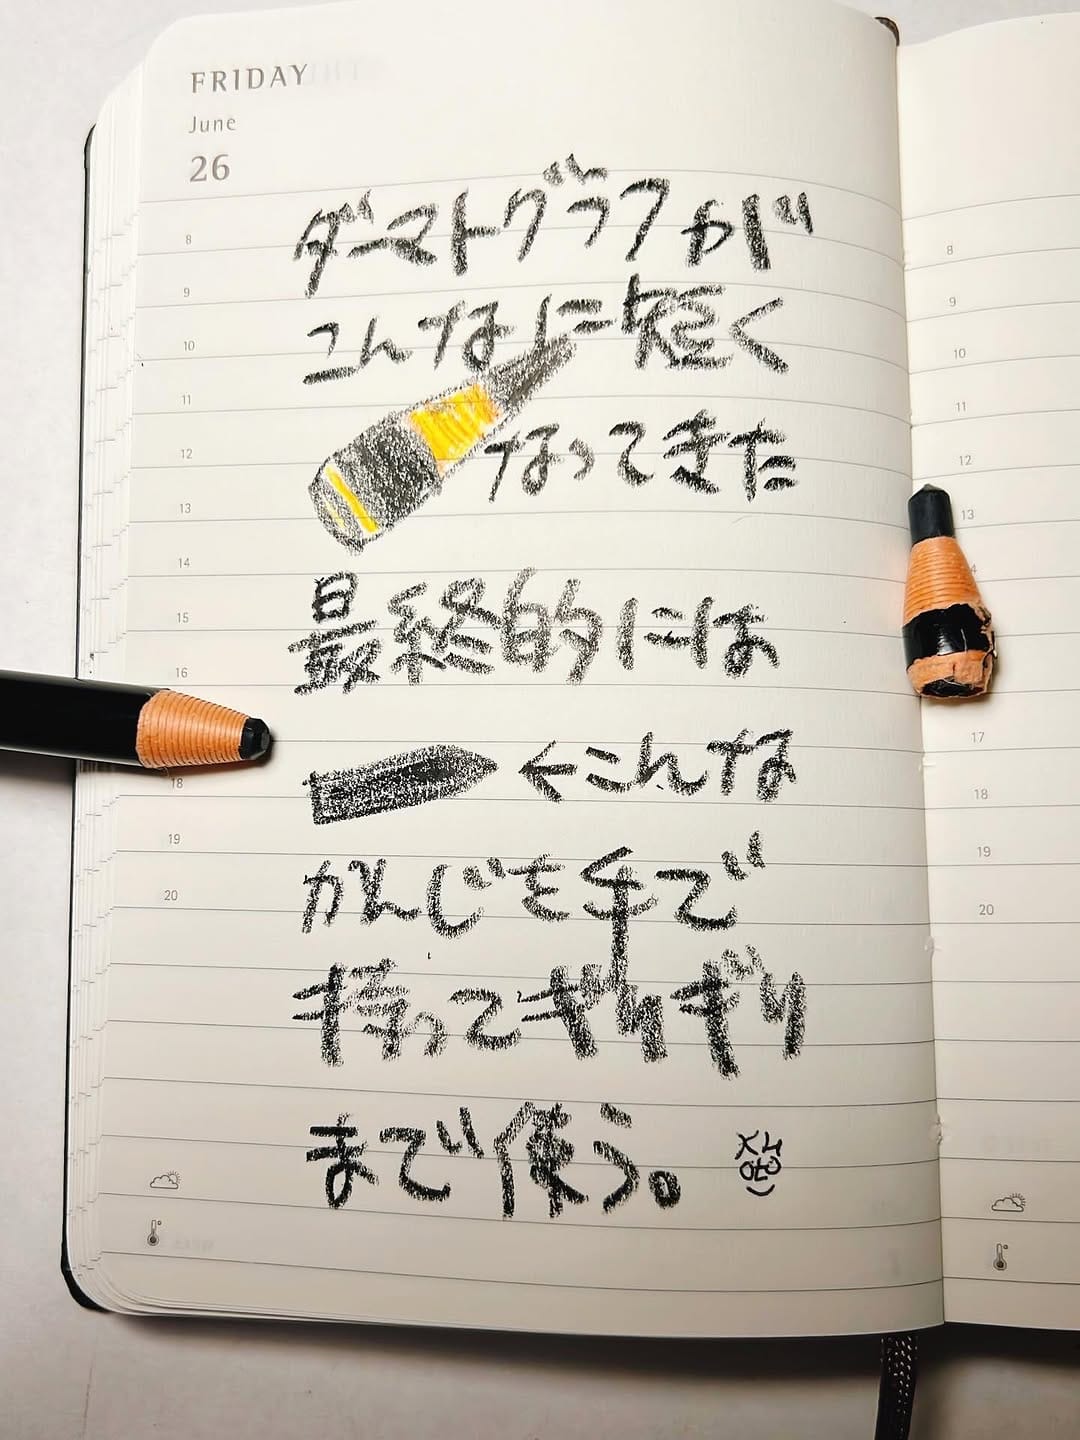 FRIDAY
June
26
ダーマトグラフが
こんなに短く
なってきた
最終的には
←こんな
かんじも手で
持ってぎりぎり
まで使う。
8
9
10
11
12
13
14
15
16
18
19
20
8
9
10
11
12
13
17
18
19
20